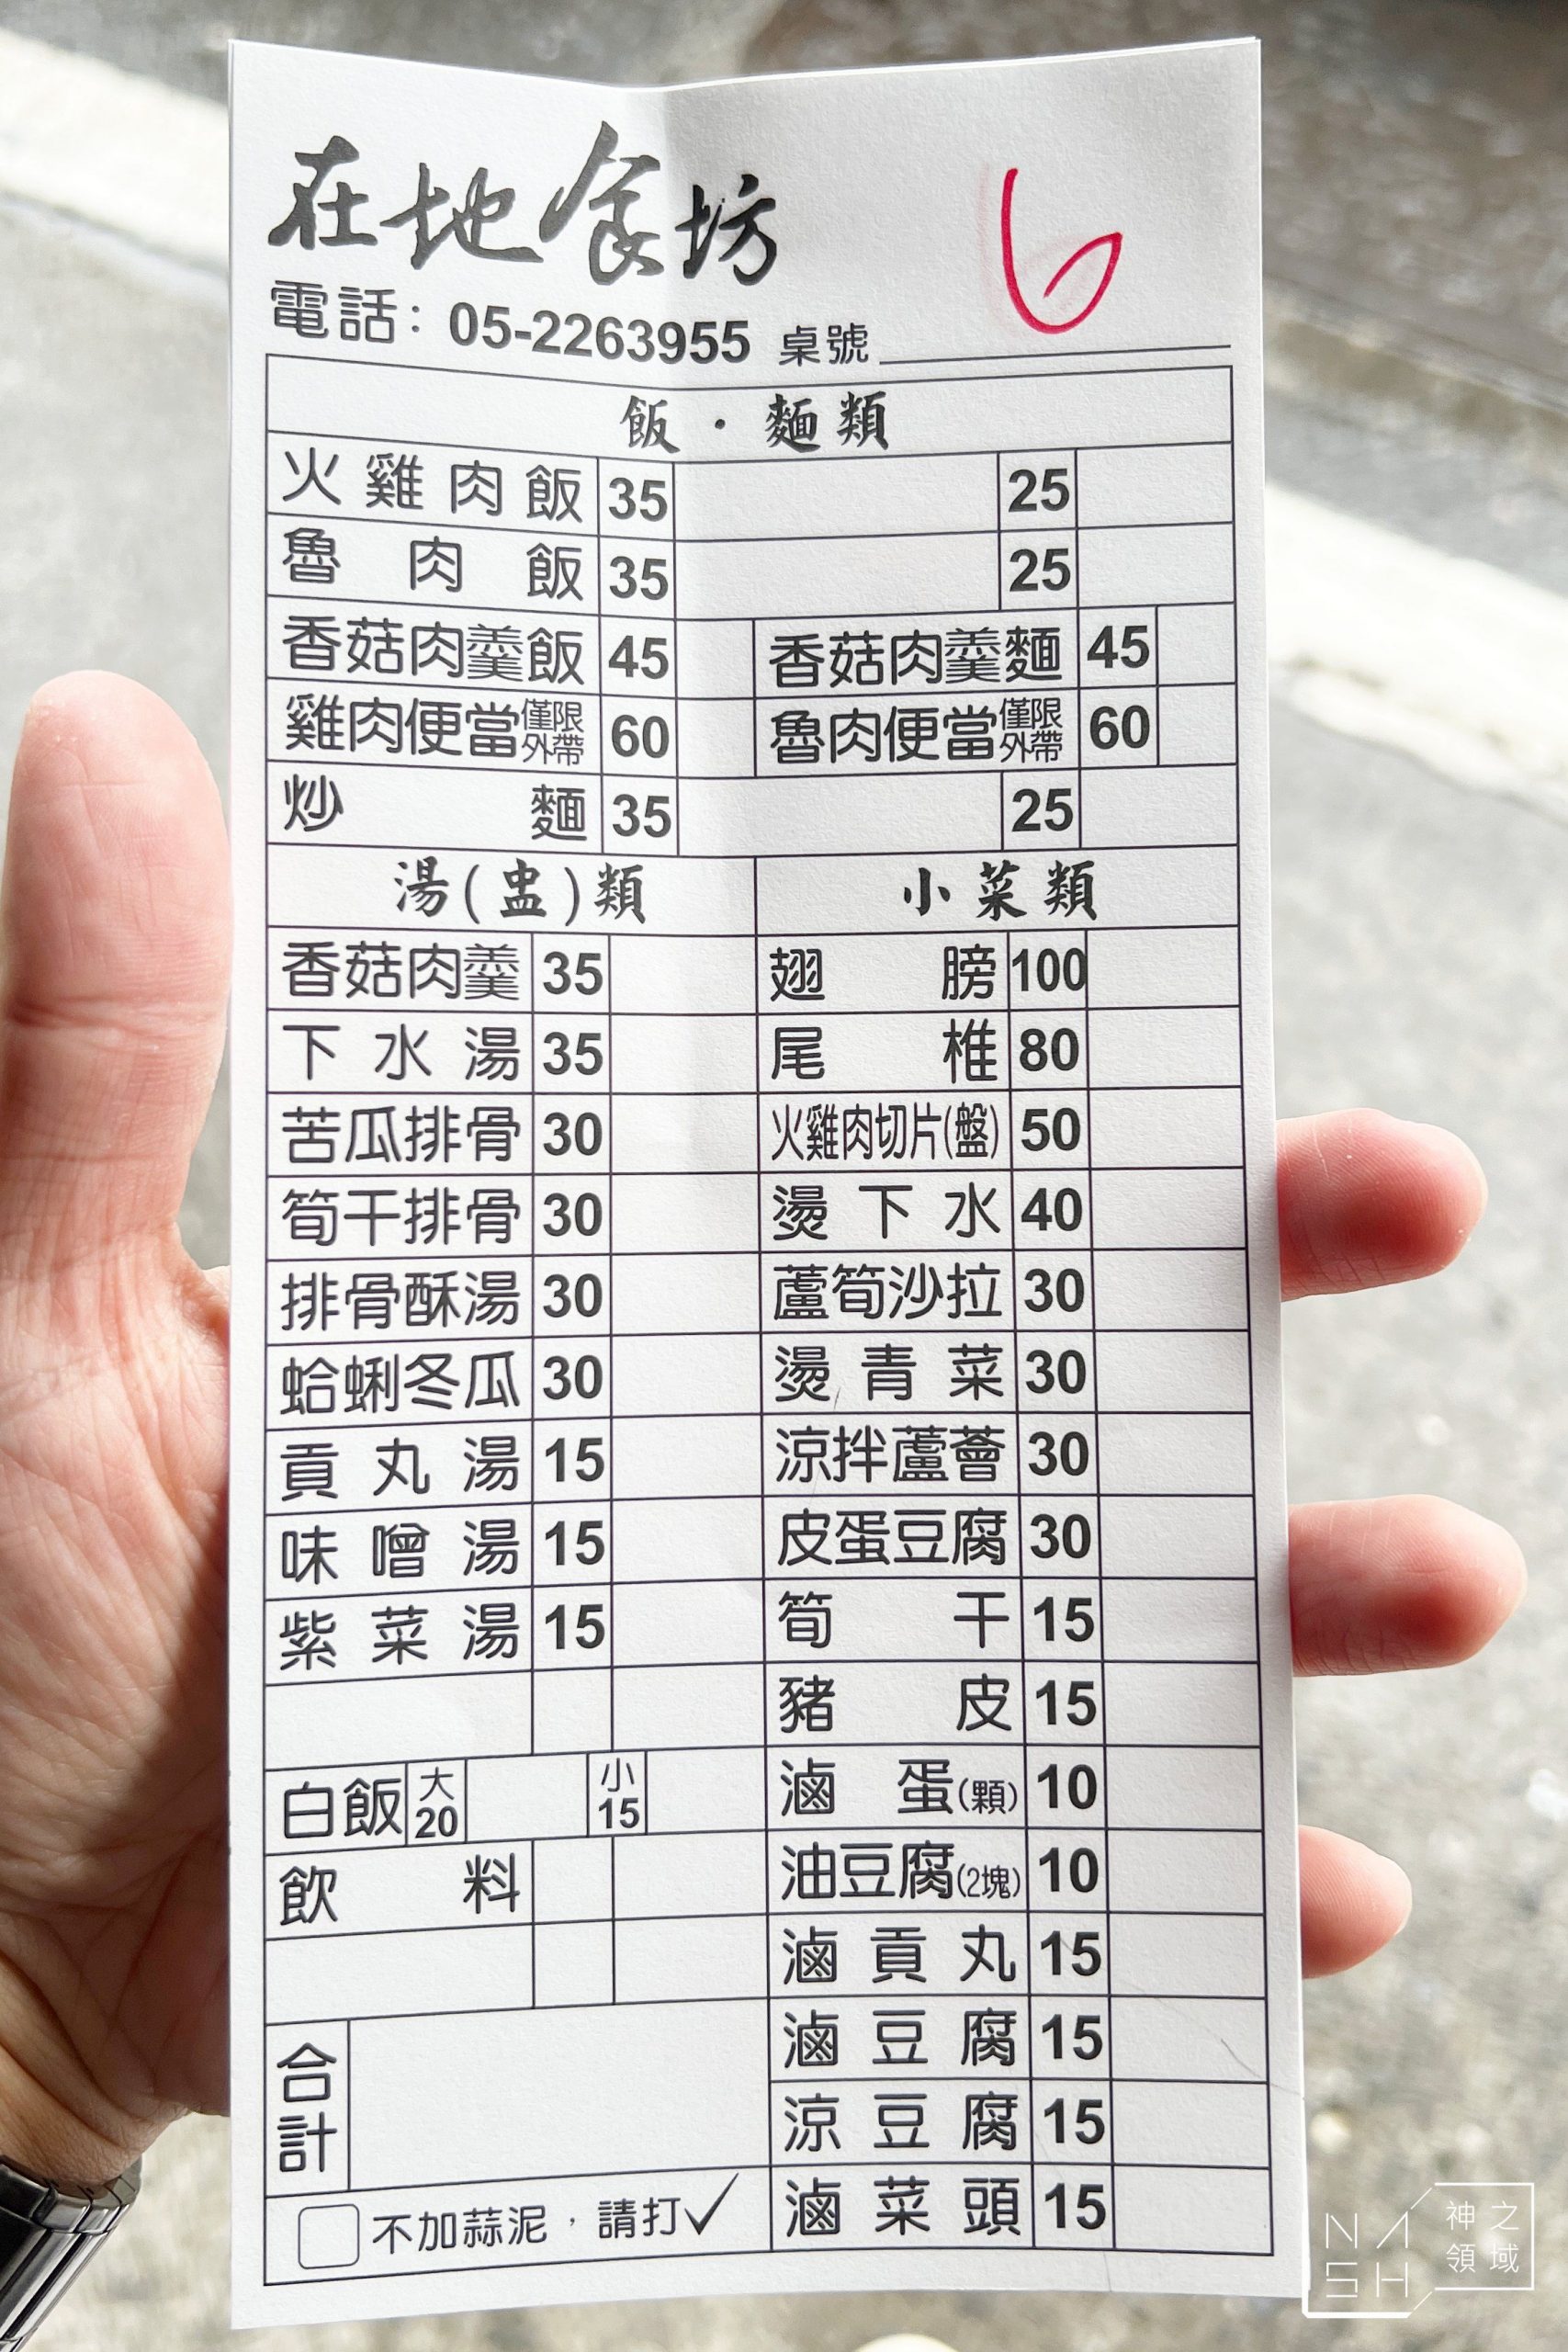 在地食坊
6
電話：05-2263955 桌號
飯・麵類
火雞肉飯 35 25
魯肉飯 35 25
香菇肉羹飯 45 香菇肉羹麵 45
雞肉便當僅限外帶 60 魯肉便當僅限外帶 60
炒麵 35 25
湯(盅)類 小菜類
香菇肉羹 35 翅膀 100
下水湯 35 尾椎 80
苦瓜排骨 30 火雞肉切片(盤) 50
筍干排骨 30 燙下水 40
排骨酥湯 30 蘆筍沙拉 30
蛤蜊冬瓜 30 燙青菜 30
貢丸湯 15 涼拌蘆薈 30
味噌湯 15 皮蛋豆腐 30
紫菜湯 15 筍干 15
豬皮 15
白飯 大20 小15 滷蛋(顆) 10
飲料 油豆腐(2塊) 10
滷貢丸 15
合計 滷豆腐 15
涼豆腐 15
不加蒜泥，請打✓ 滷菜頭 15
NASH 神之領域